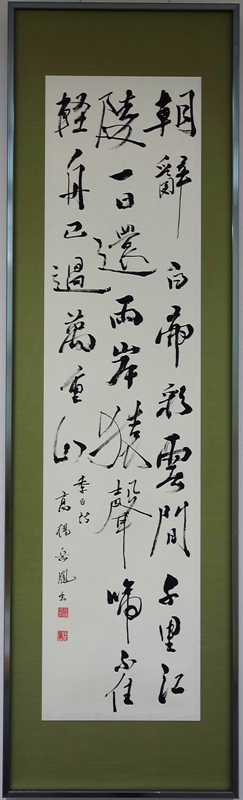 朝辭白帝彩雲間千里江
陵一日還兩岸猿聲啼不住
軽舟已過萬重山
李白詩
高楊岳鳳書